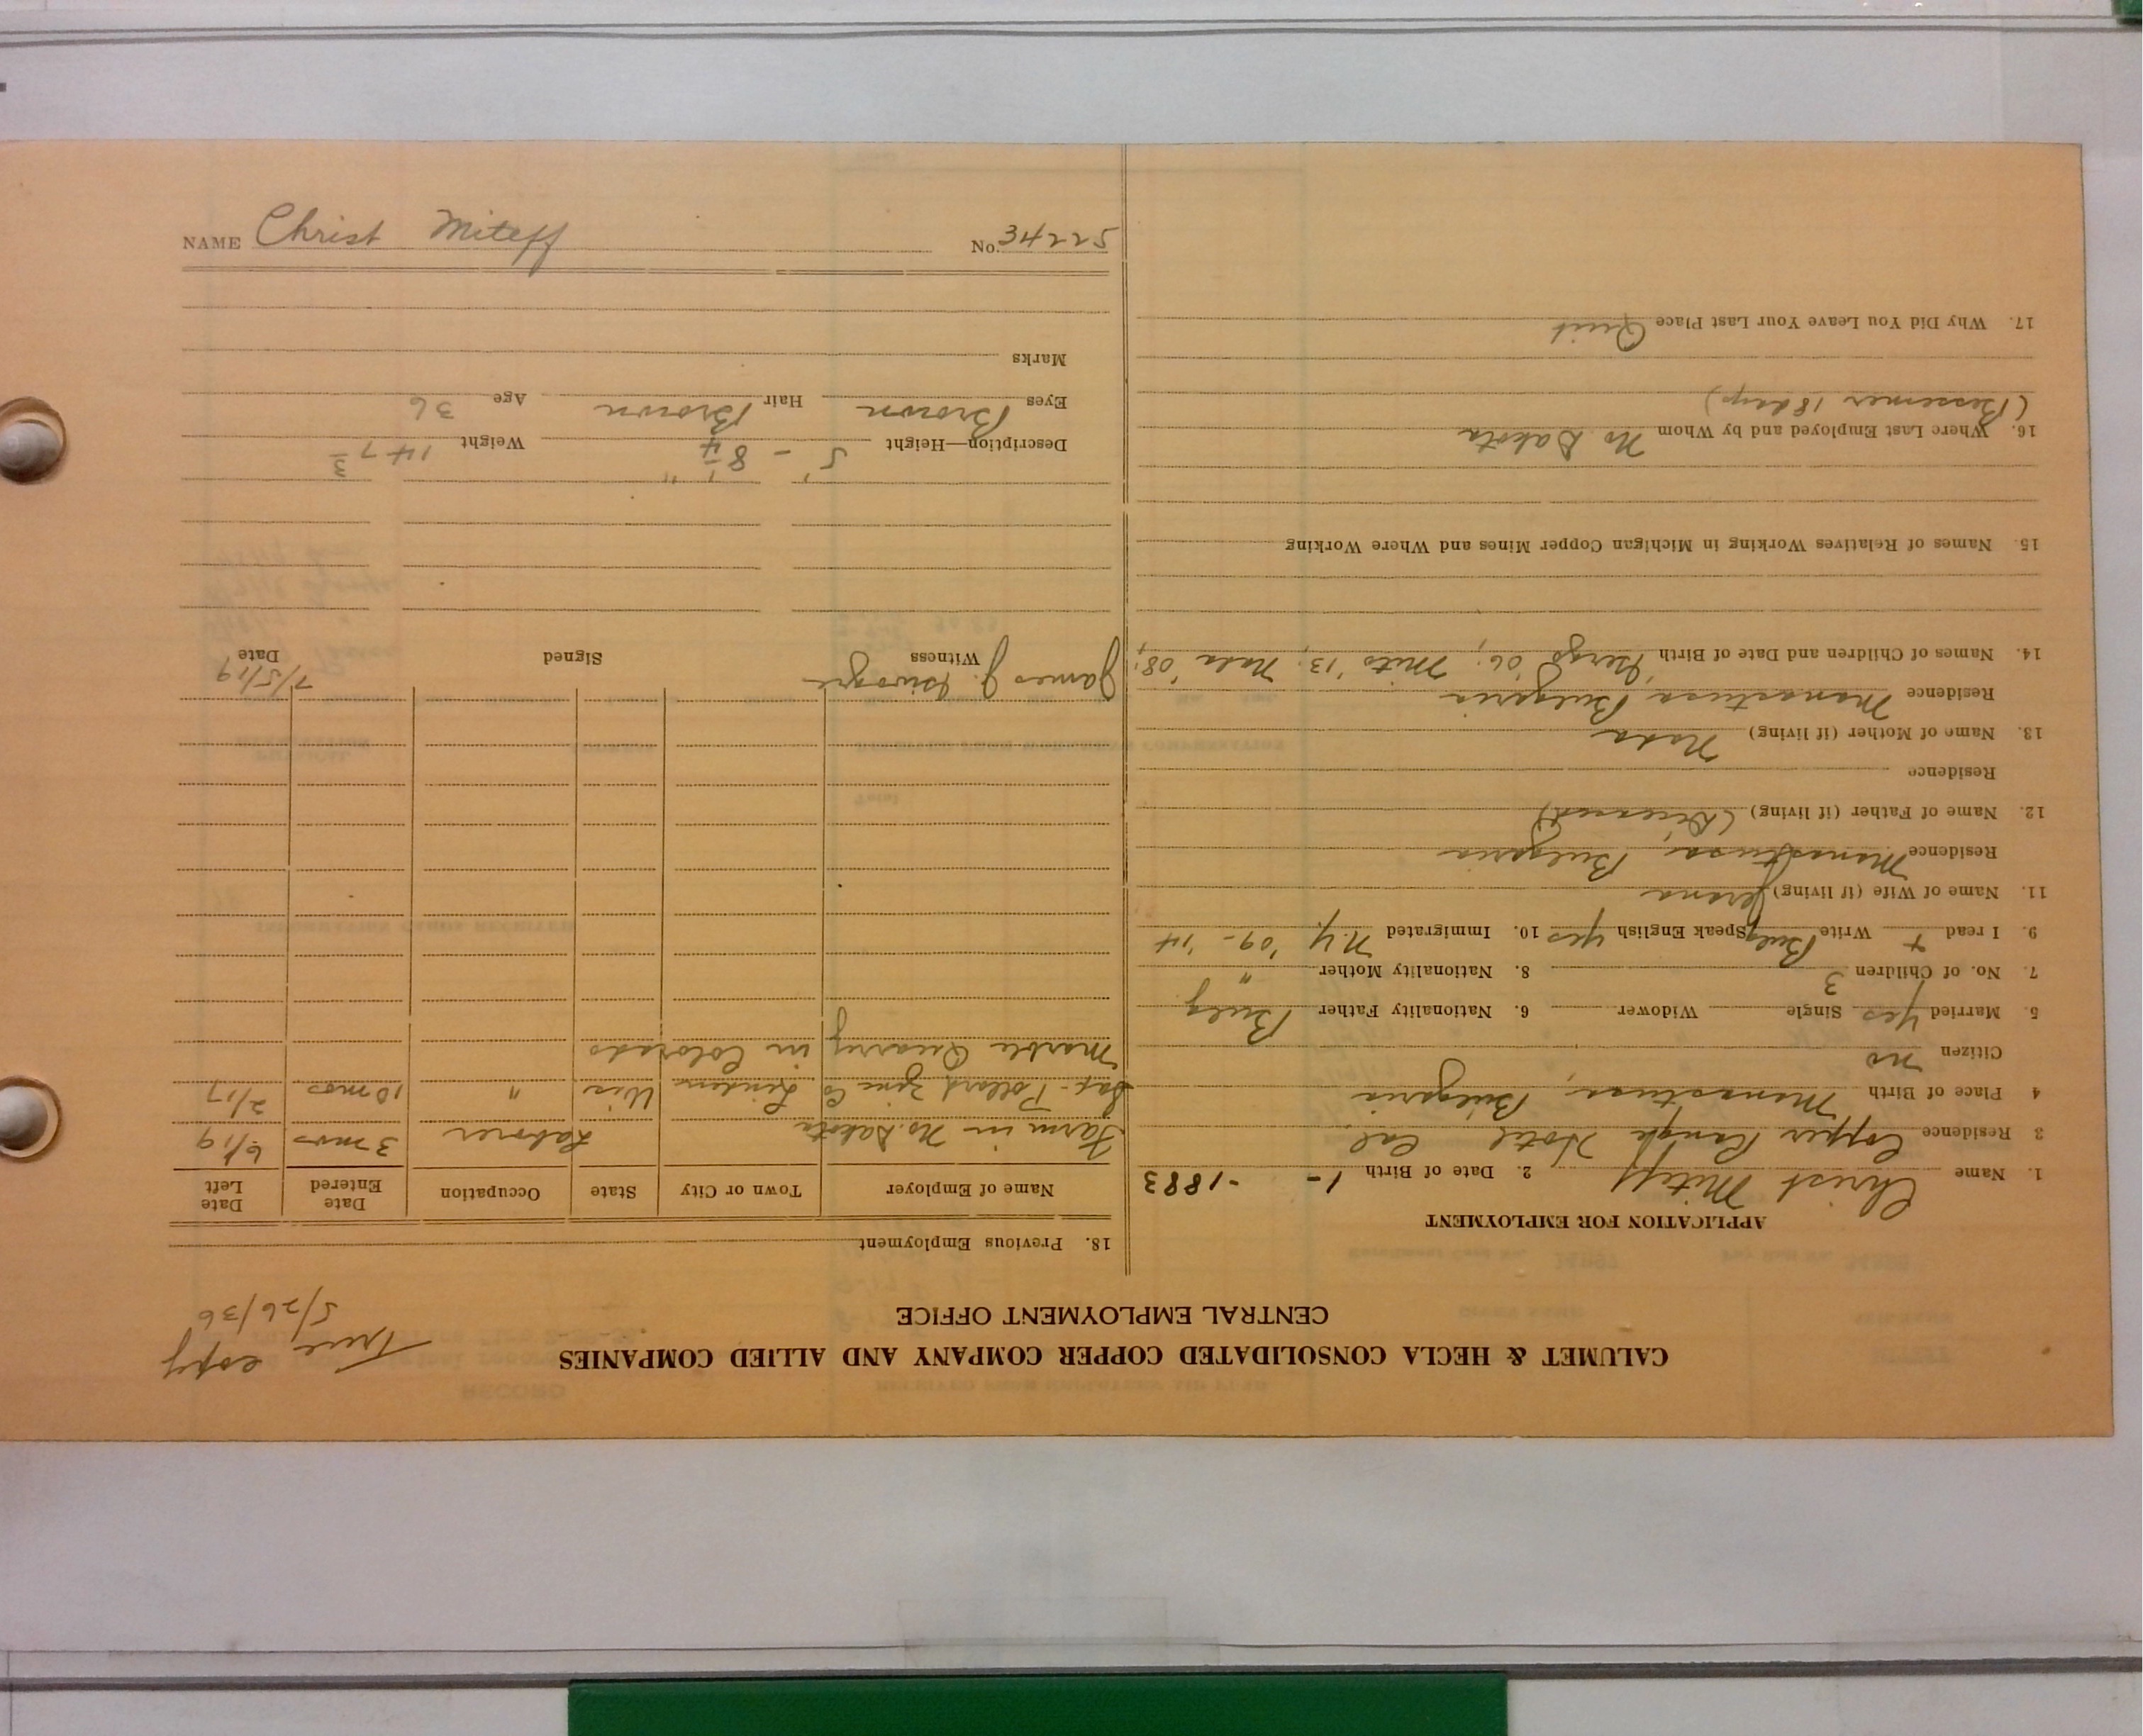 CALUMET & HECLA CONSOLIDATED COPPER COMPANY AND ALLIED COMPANIES
CENTRAL EMPLOYMENT OFFICE
True copy
5/26/36
APPLICATION FOR EMPLOYMENT
1. Name Christ Miteff 2. Date of Birth 1- -1883
3 Residence Copper Range Hotel Cal.
4 Place of Birth Manastusa, Bulgaria
Citizen no
5. Married Yes Single Widower 6. Nationality Father Bulg
7. No. of Children 3 8. Nationality Mother "
9. I read + Write Bulg Speak English yes 10. Immigrated N.Y. '09 - '14
11. Name of Wife (if living) Jerana
Residence Manastusa, Bulgaria
12. Name of Father (if living) (Deceased)
Residence
13. Name of Mother (if living) Nata
Residence Manastusa Bulgaria
14. Names of Children and Date of Birth '06; Mito '13; Nata '08;
15. Names of Relatives Working in Michigan Copper Mines and Where Working
16. Where Last Employed and by Whom No Dakota
(Bessemer 18 days)
17. Why Did You Leave Your Last Place Quit
18. Previous Employment
Name of Employer Town or City State Occupation Date Entered Date Left
Farm in No. Dakota Laborer 3 mos 6/19
Pollard Zinc Co Linden Wis " 10 mos 2/17
Marble Quarry in Colorado
James J. 7/5/19
Witness Signed Date
Description—Height 5' - 8 1/4" Weight 147 3
Eyes Brown Hair Brown Age 36
Marks
NAME Christ Miteff No. 34225